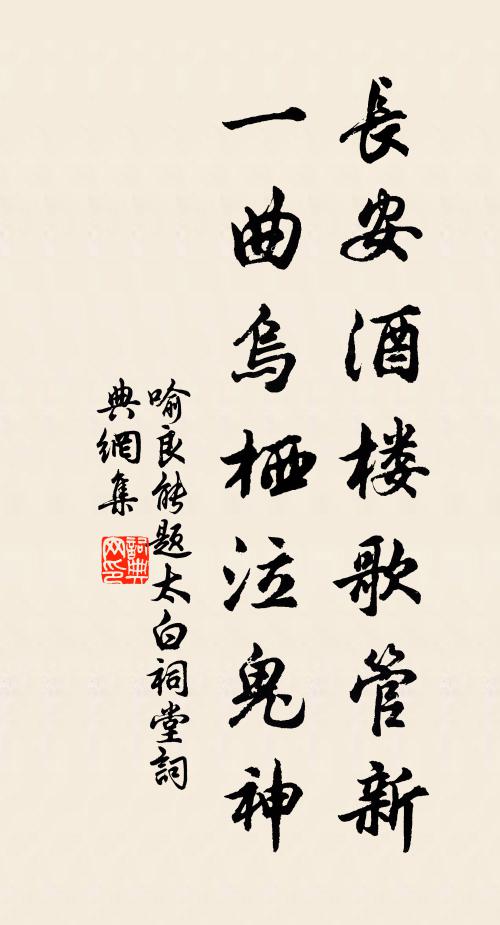 長安酒楼歌管新
一曲烏栖泣鬼神
喻良能題太白祠堂詞
典網集
詞典
网印